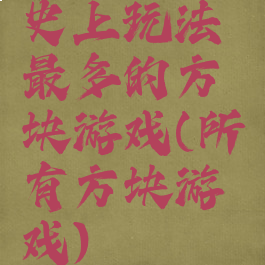 史上玩法
最多的方
块游戏(所
有方块游
戏)